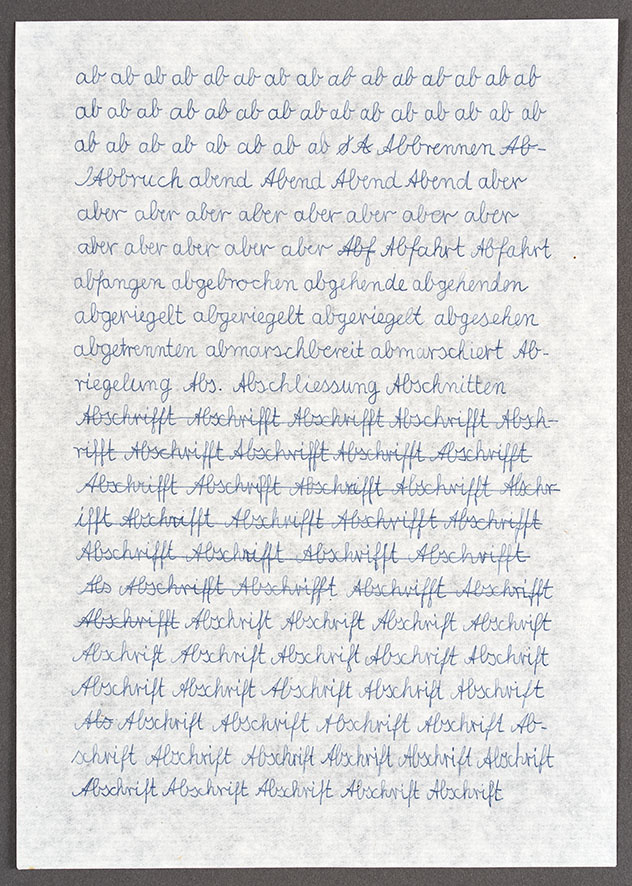 ab ab ab ab ab ab ab ab ab ab ab ab ab ab ab
ab ab ab ab ab ab ab ab ab ab ab ab ab ab ab
ab ab ab ab ab ab ab ab A Abbrennen Ab-
Abbruch abend Abend Abend Abend aber
aber aber aber aber aber aber aber aber
aber aber aber aber aber Abf Abfahrt Abfahrt
abfangen abgebrochen abgehende abgehenden
abgeriegelt abgeriegelt abgeriegelt abgesehen
abgetrennten abmarschbereit abmarschiert Ab-
riegelung Abs. Abschliessung Abschnitten
Abschrifft Abschrifft Abschrifft Abschrifft Absch-
rifft Abschrifft Abschrifft Abschrifft Abschrifft
Abschrifft Abschrifft Abschrifft Abschrifft Abschr-
ifft Abschrifft Abschrifft Abschrifft Abschrifft
Abschrifft Abschrifft Abschrifft Abschrifft
Abs Abschrifft Abschrifft Abschrifft Abschrifft
Abschrifft Abschrift Abschrift Abschrift Abschrift
Abschrift Abschrift Abschrift Abschrift Abschrift
Abschrift Abschrift Abschrift Abschrift Abschrift
Abs Abschrift Abschrift Abschrift Abschrift Ab-
schrift Abschrift Abschrift Abschrift Abschrift Abschrift
Abschrift Abschrift Abschrift Abschrift Abschrift